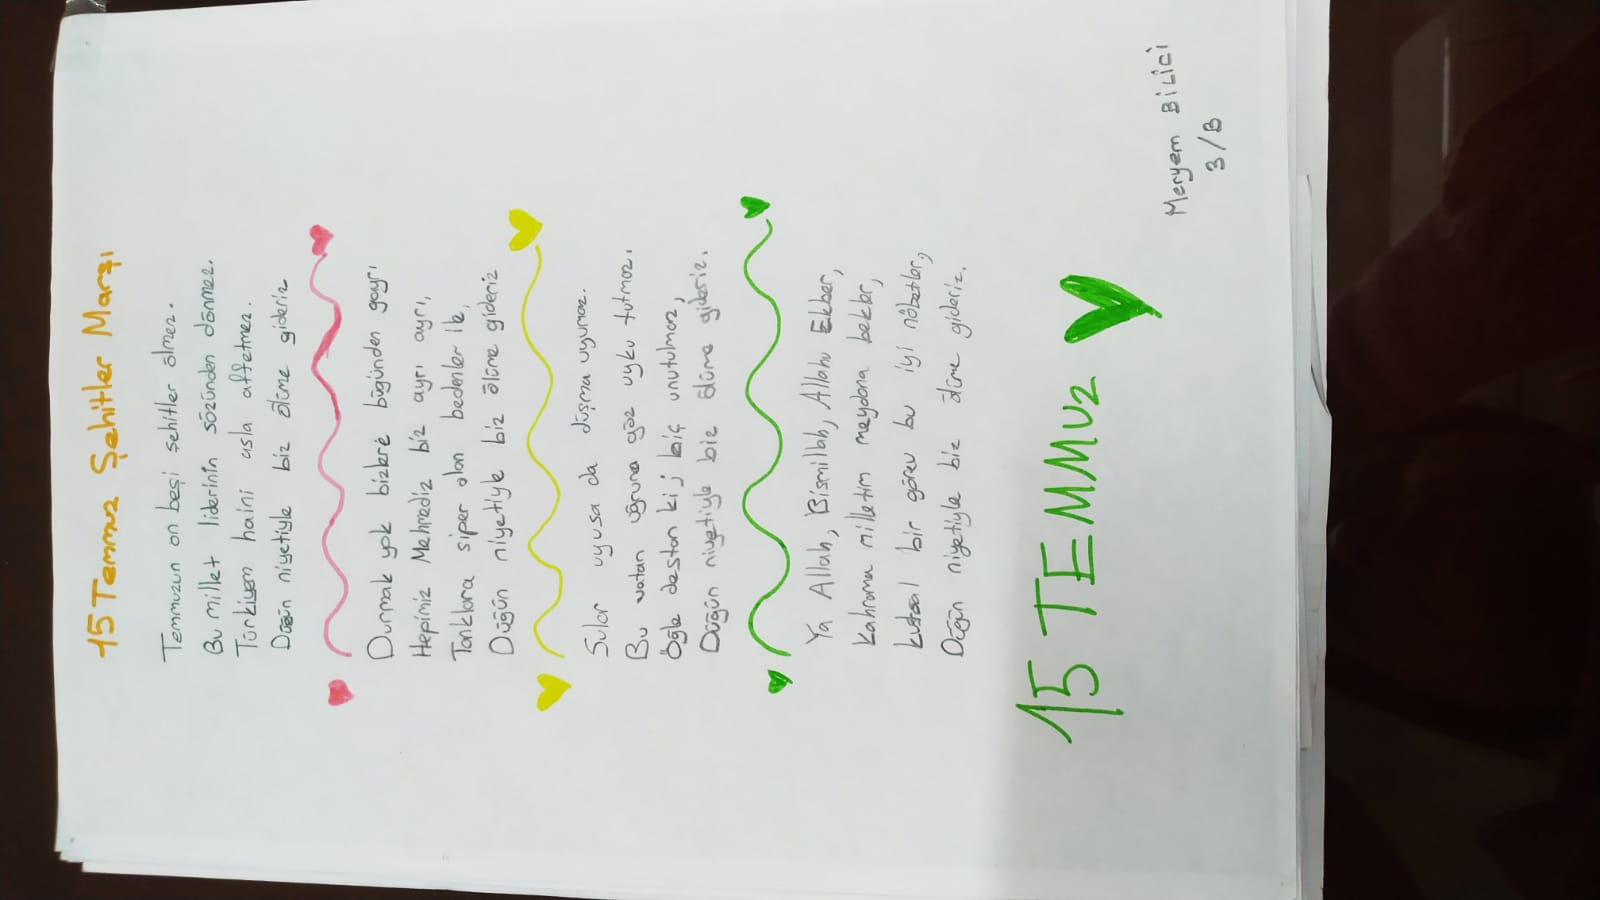 15 Temmuz Şehitler Marşı
Temmuzun on beşi şehitler ölmez.
Bu millet liderinin sözünden dönmez.
Türkiyem haini asla affetmez.
Düğün niyetiyle biz ölüme gideriz
Durmak yok bizlere bügünden gayrı
Hepimiz Mehmediz biz ayrı ayrı,
Tanklara siper olan bedenler ile,
Düğün niyetiyle biz ölüme gideriz
Sular uyusa da düşma uyumaz.
Bu vatan uğruna göz uyku tutmaz.
Öğle destan ki; hiç unutulmaz,
Düğün niyetiyle biz ölüme gideriz.
Ya Allah, Bismillah, Allahu Ekber,
Kahrama milletim meydana bekler,
Kutsal bir görev bu iyi nöbetler,
Düğün niyetiyle biz ölüme gideriz.
15 TEMMUZ
Meryem BİLİCİ
3/B